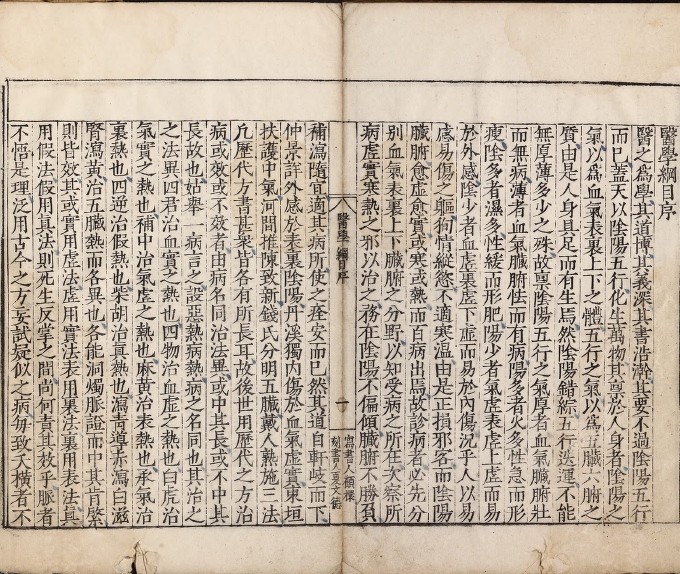 醫學綱目序
醫之爲學其道博其義深其書浩瀚其要不過陰陽五行
而已蓋天以陰陽五行化生萬物其稟於人身者陰陽之
氣以爲血氣表裏上下之體五行之氣以爲五臟六腑之
質由是人身具足而有生焉然陰陽錯綜五行迭運不能
無厚薄多少之殊故稟陰陽五行之氣厚者血氣臟腑壯
而無病薄者血氣臟腑怯而有病陽多者火多性急而形
瘦陰多者濕多性緩而形肥陽少者氣虛表虛上虛而易
於外感陰少者血虛裏虛下虛而易於內傷況乎人以易
感易傷之軀徇情縱慾不適寒温由是正損邪客而陰陽
臟腑愈虛愈實或寒或熱而百病出焉故診病者必先分
別血氣表裏上下臟腑之分野以知受病之所在次察所
病虛實寒熱之邪以治之務在陰陽不偏傾臟腑不勝負
醫學綱目序
一
補瀉隨宜適其病所使之痊安而已然其道自軒岐而下
仲景詳外感於表裏陰陽丹溪獨內傷於血氣虛實東垣
扶護中氣河間推陳致新錢氏分明五臟戴人熟施三法
凡歷代方書甚衆皆各有所長耳故後世用歷代之方治
病或效或不效者由病名同治法異或中其長或不中其
長故也姑舉一病言之設惡熱病熱病之名同也其治之
之法異四君治血實之熱也四物治血虛之熱也白虎治
氣實之熱也補中治氣虛之熱也麻黃治表熱也承氣治
裏熱也四逆治假熱也柴胡治真熱也瀉青導赤瀉白滋
腎瀉黃治五臟熱而各異也各能洞燭脈證而中其肯綮
則皆效其或實用虛法虛用實法表用裏法裏用表法真
用假法假用真法則死生反掌之間尚何責其效乎脈者
不悟是理泛用古今之方妄試疑似之病毎致夭橫者不